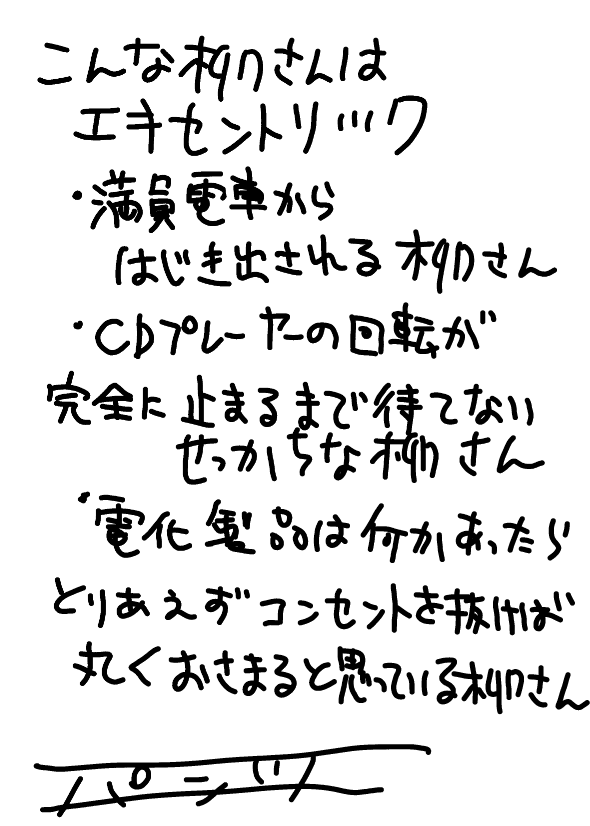 こんな柳さんは
エキセントリック
・満員電車から
はじき出される柳さん
・CDプレーヤーの回転が
完全に止まるまで待てない
せっかちな柳さん
・電化製品は何かあったら
とりあえずコンセントを抜けば
丸くおさまると思っている柳さん
パンツ